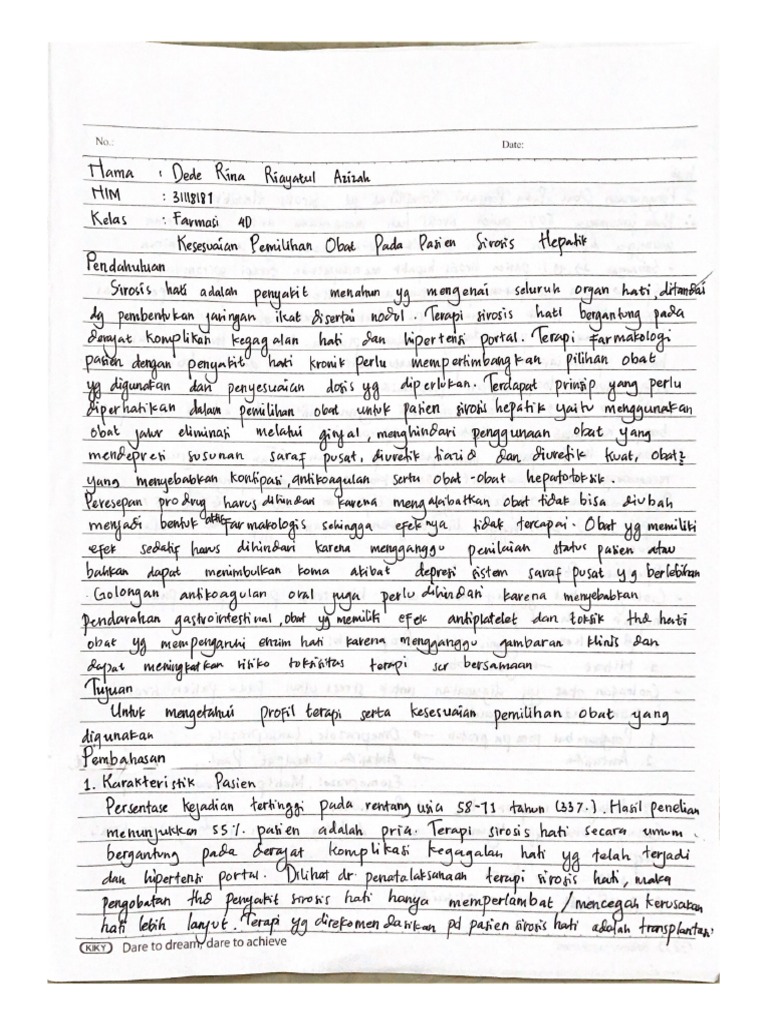 No.:
Date:
Nama : Dede Rina Riayatul Azizah
NIM : 31118181
Kelas : Farmasi 4D
Kesesuaian Pemilihan Obat Pada Pasien Sirosis Hepatik
Pendahuluan
Sirosis hati adalah penyakit menahun yg mengenai seluruh organ hati, ditandai
dg pembentukan jaringan ikat disertai nodul. Terapi sirosis hati bergantung pada
derajat komplikan kegagalan hati dan hipertensi portal. Terapi farmakologi
pasien dengan penyakit hati kronik perlu mempertimbangkan pilihan obat
yg digunakan dan penyesuaian dosis yg diperlukan. Terdapat prinsip yang perlu
diperhatikan dalam pemilihan obat untuk pasien sirosis hepatik yaitu menggunakan
obat jalur eliminasi melalui ginjal, menghindari penggunaan obat yang
mendepresi susunan saraf pusat, diuretik tiazid dan diuretik kuat, obat2
yang menyebabkan kontipasi, antikoagulan serta obat-obat hepatotoksik.
Peresepan prodrug harus dihindari karena mengakibatkan obat tidak bisa diubah
menjadi bentuk aktif farmakologis sehingga efek nya tidak tercapai. Obat yg memiliki
efek sedatif harus dihindari karena mengganggu penilaian status pasien atau
bahkan dapat menimbulkan koma akibat depresi sistem saraf pusat yg berlebihan
. Golongan antikoagulan oral juga perlu dihindari karena menyebabkan
pendarahan gastrointestinal, obat yg memiliki efek antiplatelet dan toksik thd hati
obat yg mempengaruhi enzim hati karena mengganggu gambaran klinis dan
dapat meningkatkan risiko toksisitas terapi scr bersamaan
Tujuan
Untuk mengetahui profil terapi serta kesesuaian pemilihan obat yang
digunakan
Pembahasan
1. Karakteristik Pasien
Persentase kejadian tertinggi pada rentang usia 58-71 tahun (33%). Hasil penelian
menunjukkan 55% pasien adalah pria. Terapi sirosis hati secara umum
bergantung pada derajat komplikasi kegagalan hati yg telah terjadi
dan hipertensi portal. Dilihat dr penatalaksanaan terapi sirosis hati, maka
pengobatan thd penyakit sirosis hati hanya memperlambat / mencegah kerusakan
hati lebih lanjut. Terapi yg direkomendasikan pd pasien sirosis hati adalah transplantasi
KIKY Dare to dream, dare to achieve